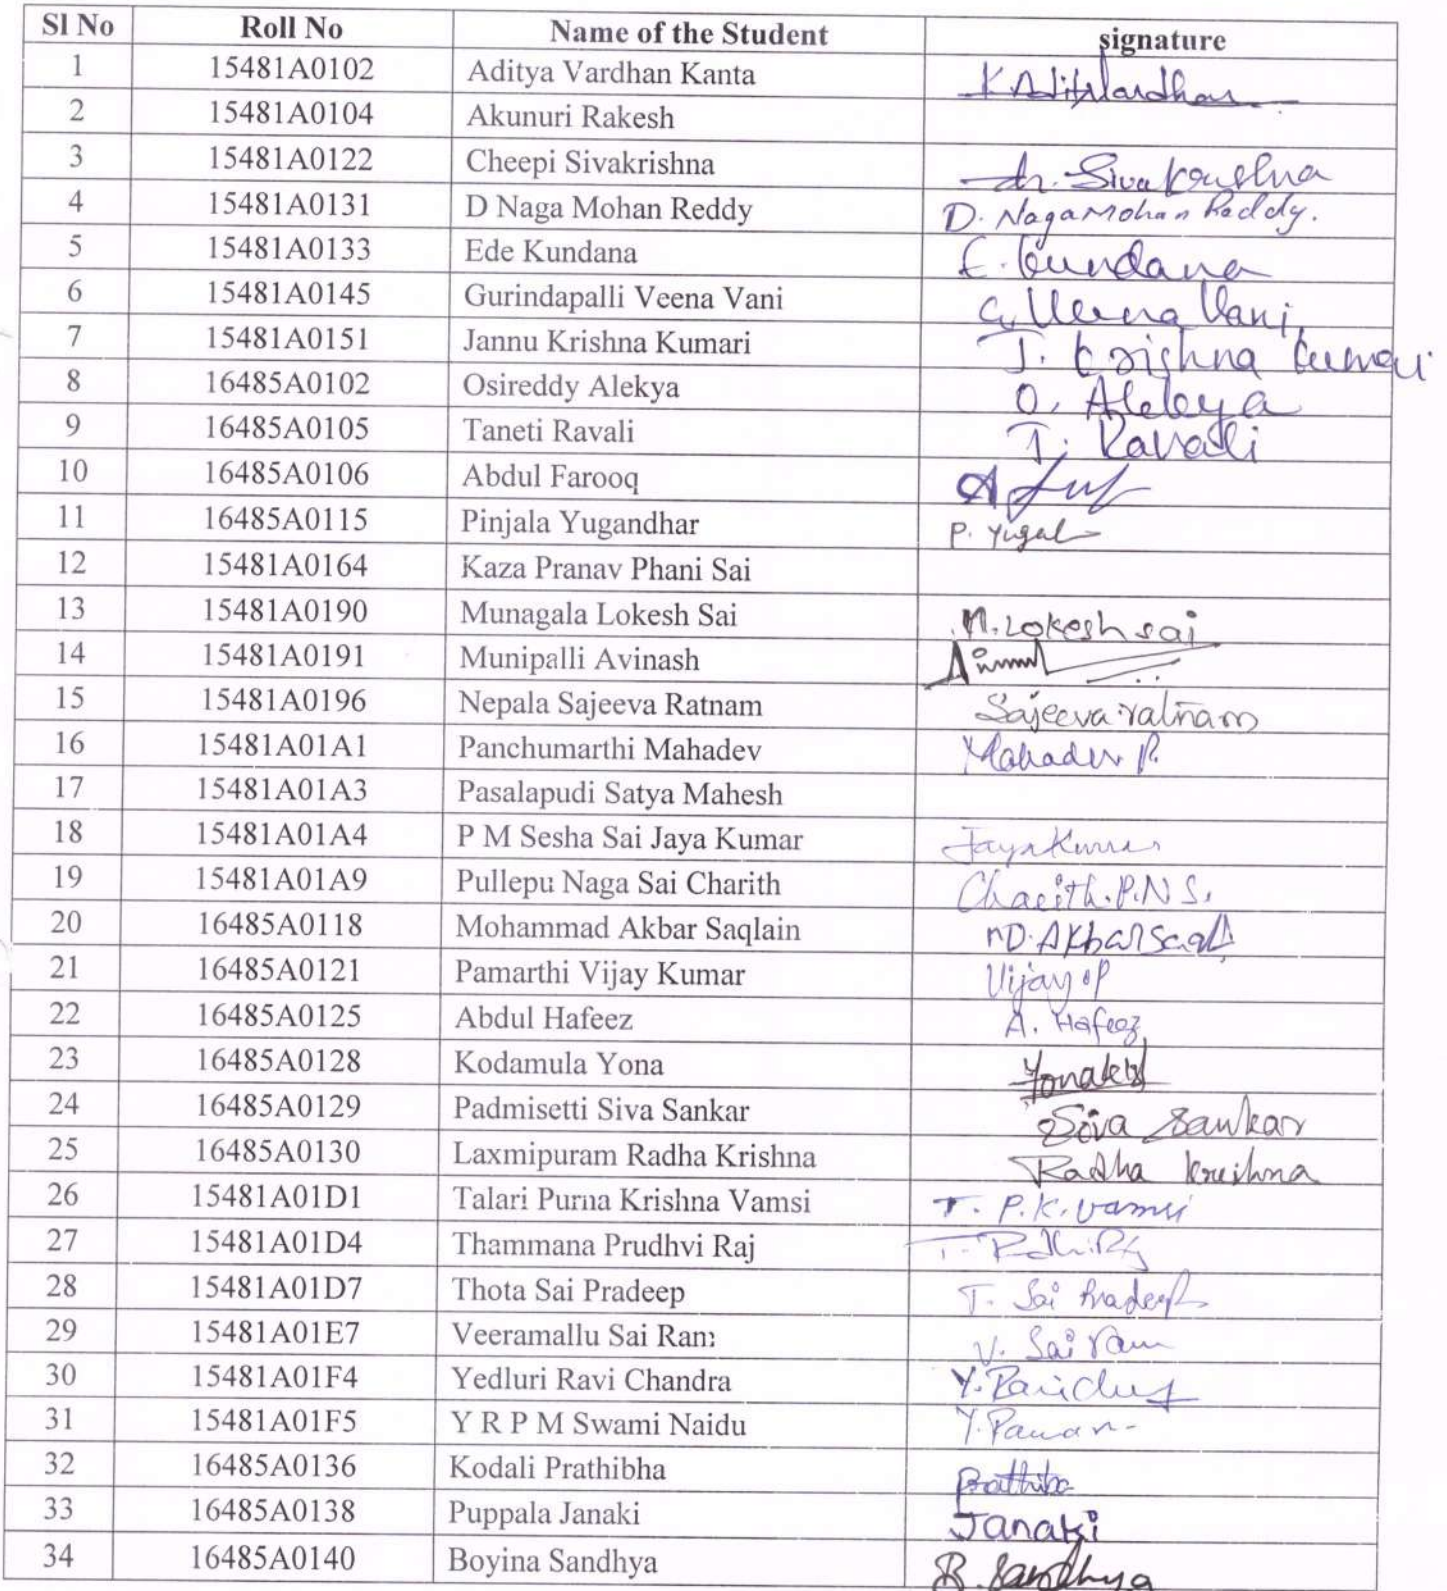 Sl No Roll No Name of the Student signature
1 15481A0102 Aditya Vardhan Kanta K AdityVardhan
2 15481A0104 Akunuri Rakesh
3 15481A0122 Cheepi Sivakrishna Ch. Sivakrishna
4 15481A0131 D Naga Mohan Reddy D. NagaMohan Reddy.
5 15481A0133 Ede Kundana E. Kundana
6 15481A0145 Gurindapalli Veena Vani G. Veena Vani
7 15481A0151 Jannu Krishna Kumari J. Krishna Kumari
8 16485A0102 Osireddy Alekya O. Alekya
9 16485A0105 Taneti Ravali T. Ravali
10 16485A0106 Abdul Farooq
11 16485A0115 Pinjala Yugandhar P. Yugal
12 15481A0164 Kaza Pranav Phani Sai
13 15481A0190 Munagala Lokesh Sai M. Lokesh sai
14 15481A0191 Munipalli Avinash
15 15481A0196 Nepala Sajeeva Ratnam Sajeeva ratnam
16 15481A01A1 Panchumarthi Mahadev Mahadev P.
17 15481A01A3 Pasalapudi Satya Mahesh
18 15481A01A4 P M Sesha Sai Jaya Kumar JayaKumar
19 15481A01A9 Pullepu Naga Sai Charith Charith.P.N.S.
20 16485A0118 Mohammad Akbar Saqlain MD. Akbar Saql
21 16485A0121 Pamarthi Vijay Kumar Vijay P
22 16485A0125 Abdul Hafeez A. Hafeez
23 16485A0128 Kodamula Yona
24 16485A0129 Padmisetti Siva Sankar Siva Sankar
25 16485A0130 Laxmipuram Radha Krishna Radha Krishna
26 15481A01D1 Talari Purna Krishna Vamsi T. P.K. Vamsi
27 15481A01D4 Thammana Prudhvi Raj
28 15481A01D7 Thota Sai Pradeep T. Sai Pradeep
29 15481A01E7 Veeramallu Sai Ram V. Sai Ram
30 15481A01F4 Yedluri Ravi Chandra Y.
31 15481A01F5 Y R P M Swami Naidu Y. Pawan
32 16485A0136 Kodali Prathibha Prathiba
33 16485A0138 Puppala Janaki Janaki
34 16485A0140 Boyina Sandhya B. Sandhya